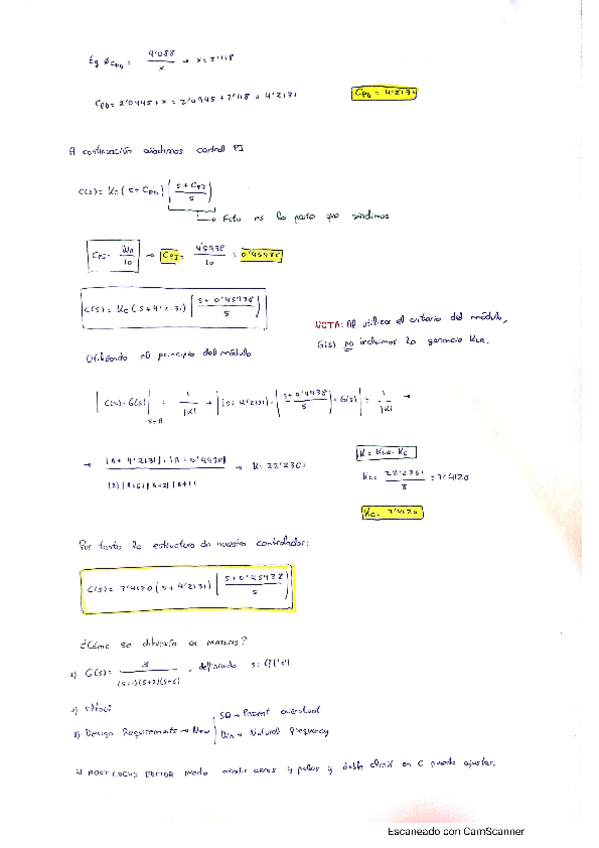 tg ϕCPD = 4'088 / x → x = 2'118
CPD = 2'0945 + x = 2'0945 + 2'118 = 4'2131
CPD = 4'2131
A continuación añadimos control PI
C(s) = Kc (s + CPD) [s + CPI / s]
Esto es la parte que añadimos
CPI = Wn / 10 → CPI = 4'5938 / 10 = 0'45938
C(s) = Kc (s + 4'2131) [s + 0'45938 / s]
NOTA: Al utilizar el criterio del módulo,
G(s) no incluimos la ganancia KLR.
Utilizando el principio del módulo
|C(s) · G(s)| s=A = 1 / |K| →
→ K = 22'2361
K = KLR · Kc
Kc = 22'2361 / 3 = 7'4120
Kc = 7'4120
Por tanto la estructura de nuestro controlador:
C(s) = 7'4120 (s + 4'2131) [s + 0'45938 / s]
¿Cómo se dibujaría en MATLAB?
1) G(s) = 3 / (s+1)(s+2)(s+6), definiendo s = tf('s')
2) sisotool
3) Design Requirements → New
SO → Percent overshoot
Wn → Natural frequency
4) ROOT LOCUS EDITOR puedo añadir ceros y polos y doble click en C puedo ajustar.
Escaneado con CamScanner